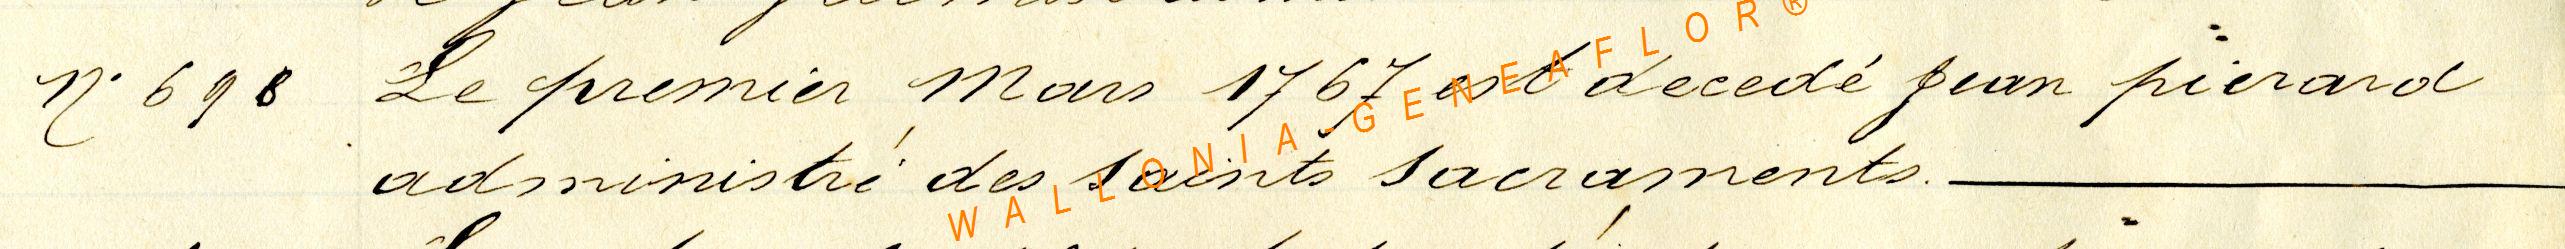 N° 698 Le premier Mars 1767 est decedé jean pierard
administré des saints sacraments.
WALLONIA-GENEAFLOR®